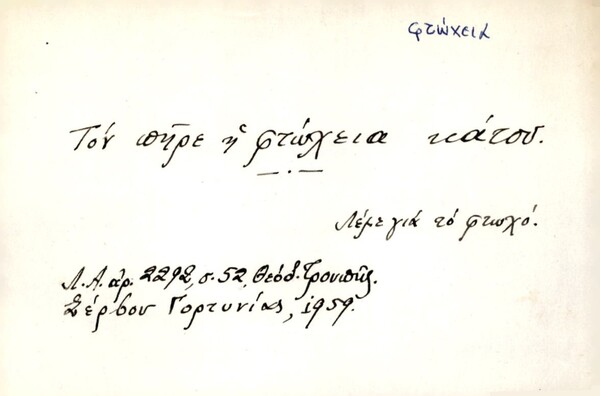 φτώχεια
Τόν πῆρε ἡ φτώχεια κάτου.
Λέμε γιά τό φτωχό.
Λ.Α. ἀρ. 2292, σ. 52, Θεόδ. Τρουπῆς.
Σέρβου Γορτυνίας, 1959.